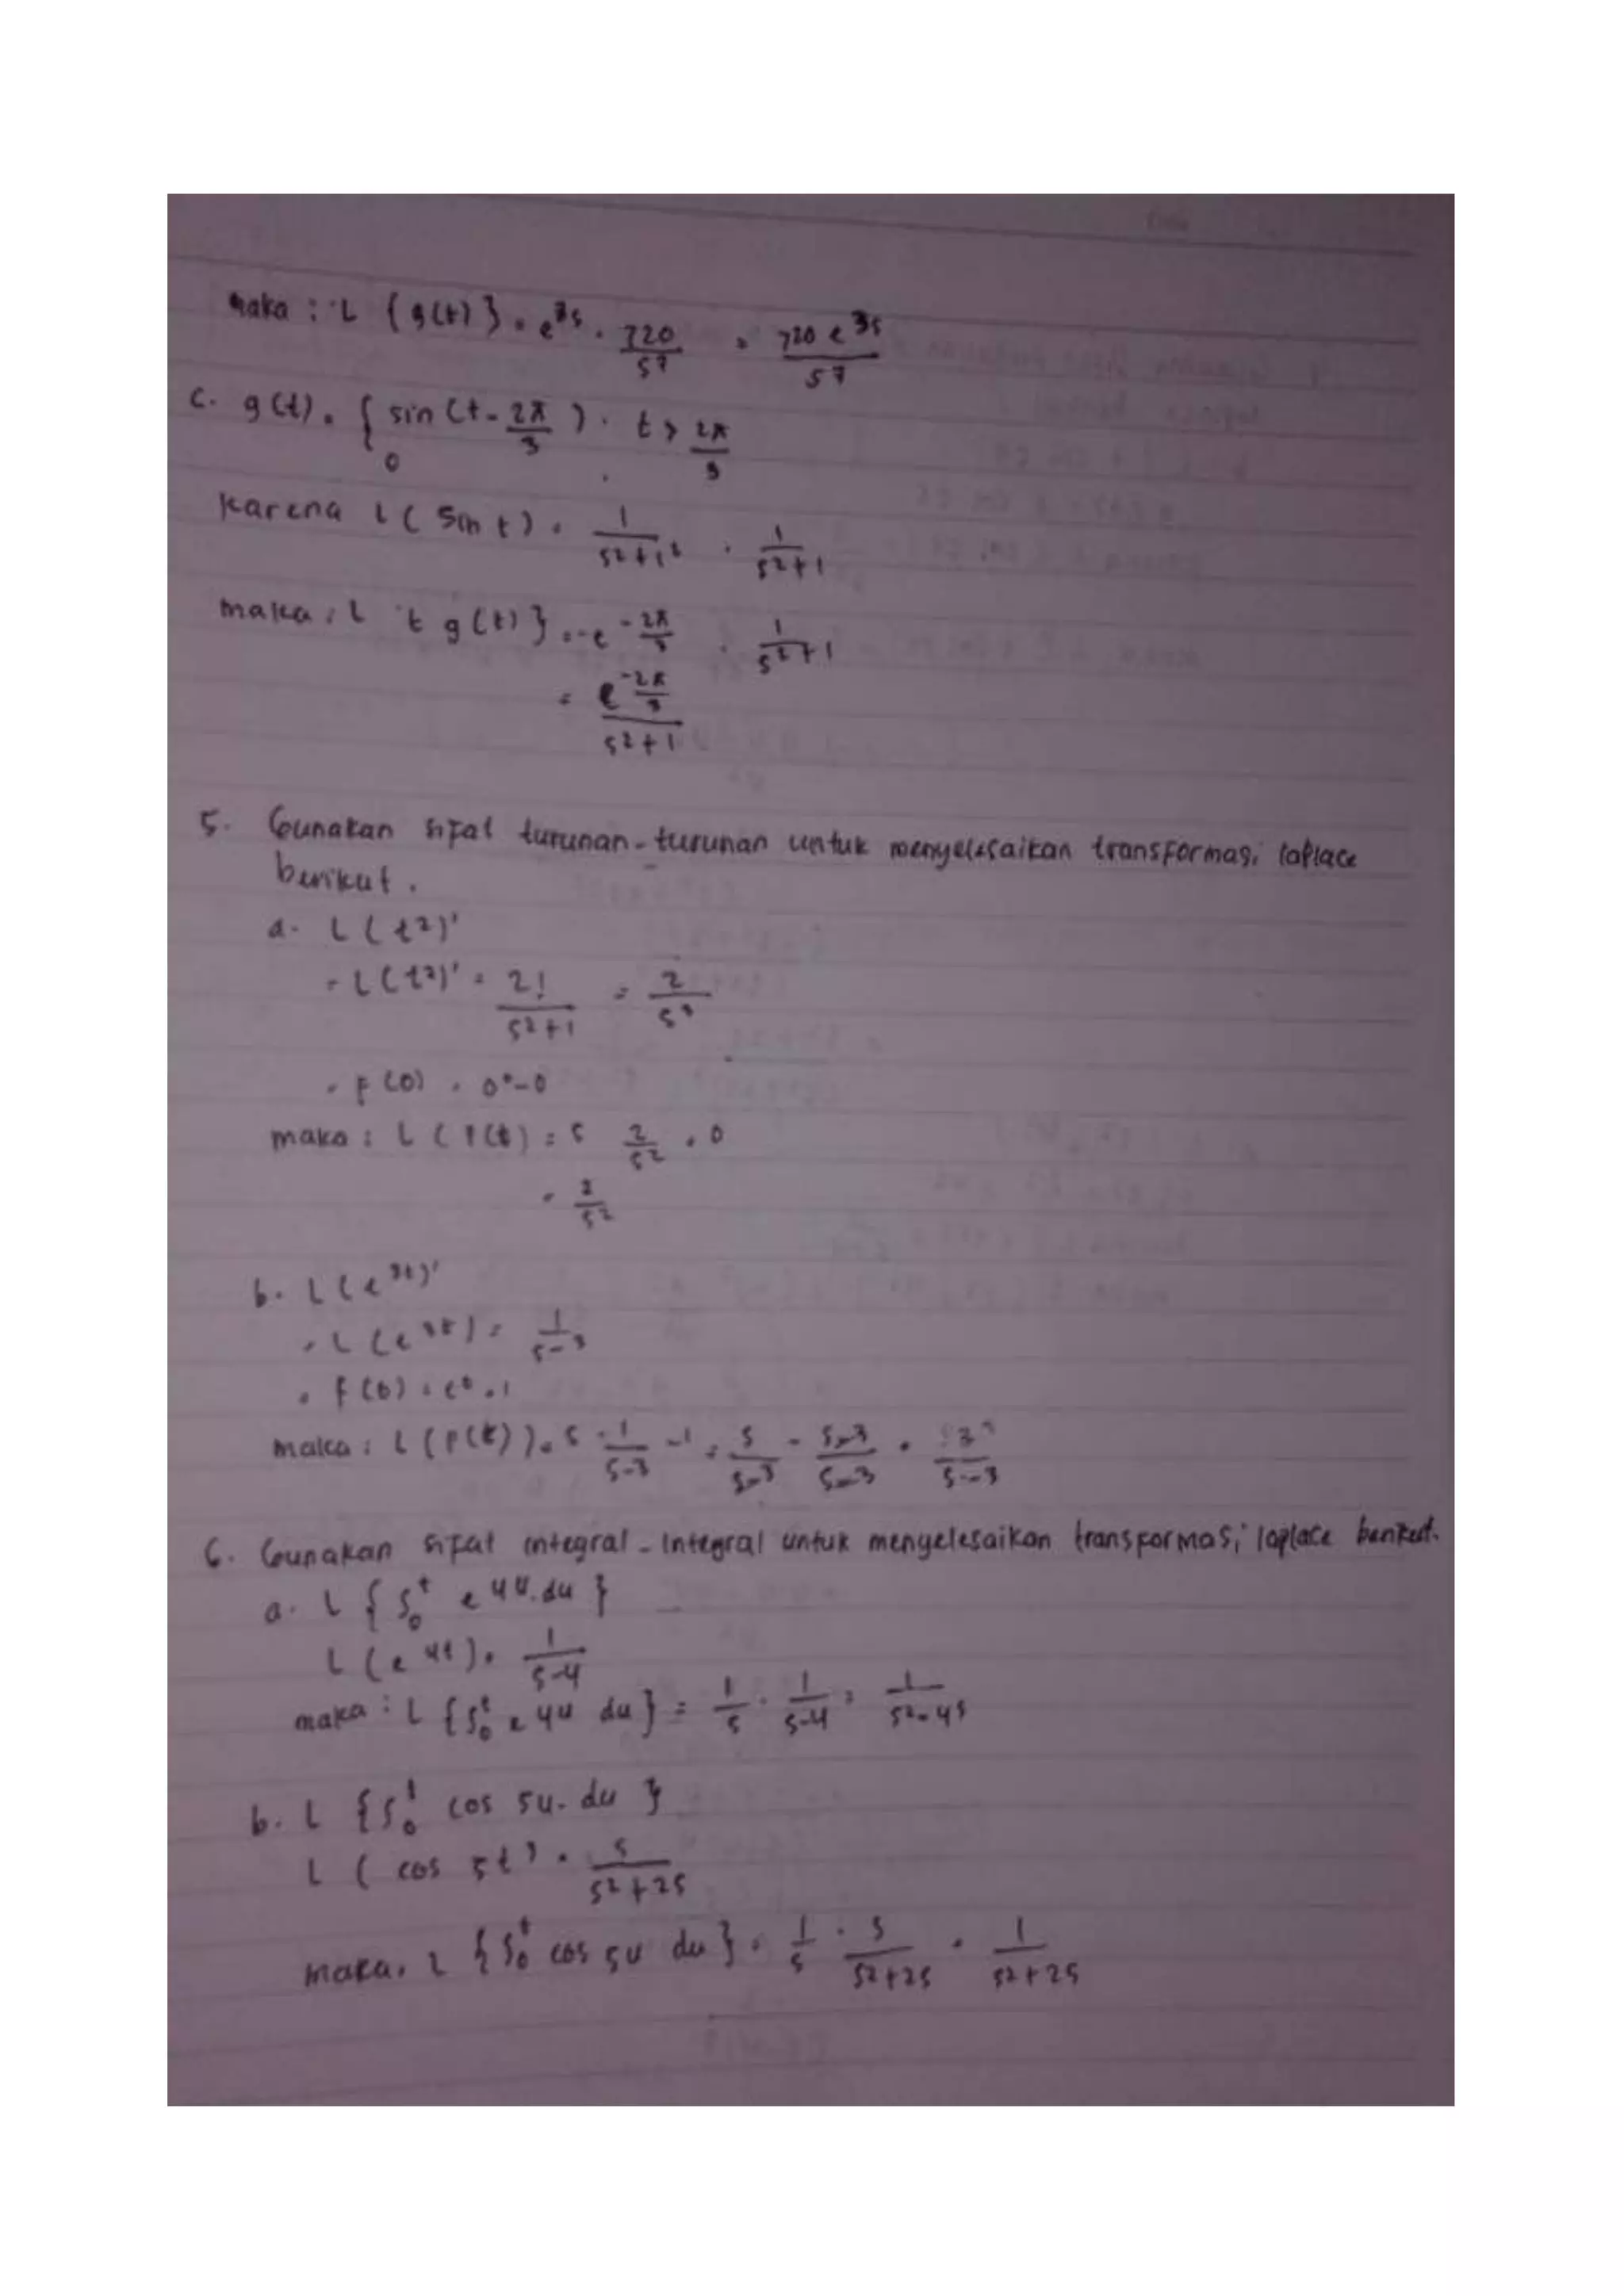 maka : L { g(t) } = e^3s . 720/s^7 = 720 e^3s / s^7
c. g(t) = { sin (t - 2π/3) . t > 2π/3
0
Karena L ( Sin t ) = 1/s²+1² = 1/s²+1
maka : L { g(t) } = e^-2π/3 . 1/s²+1
= e^-2π/3 / s²+1
5. Gunakan sifat turunan-turunan untuk menyelesaikan transformasi laplace
berikut.
a. L ( t² )'
= L ( t² )' = 2!/s²+1 = 2/s³
. F (0) = 0² = 0
maka : L ( F(t) ) = s 2/s² . 0
= 2/s²
b. L ( e^3t )'
. L ( e^3t ) = 1/s-3
. F (0) = e^0 = 1
maka : L ( F(t) ) = s . 1/s-3 - 1 = s/s-3 - s-3/s-3 = 3/s-3
6. Gunakan sifat integral - Integral untuk menyelesaikan transformasi laplace berikut.
a. L { ∫₀^t e^4u . du }
L ( e^4t ) = 1/s-4
maka : L { ∫₀^t e^4u du } = 1/s . 1/s-4 = 1/s²-4s
b. L { ∫₀^t cos 5u . du }
L ( cos 5t ) = s/s²+25
maka, L { ∫₀^t cos 5u du } = 1/s . s/s²+25 = 1/s²+25